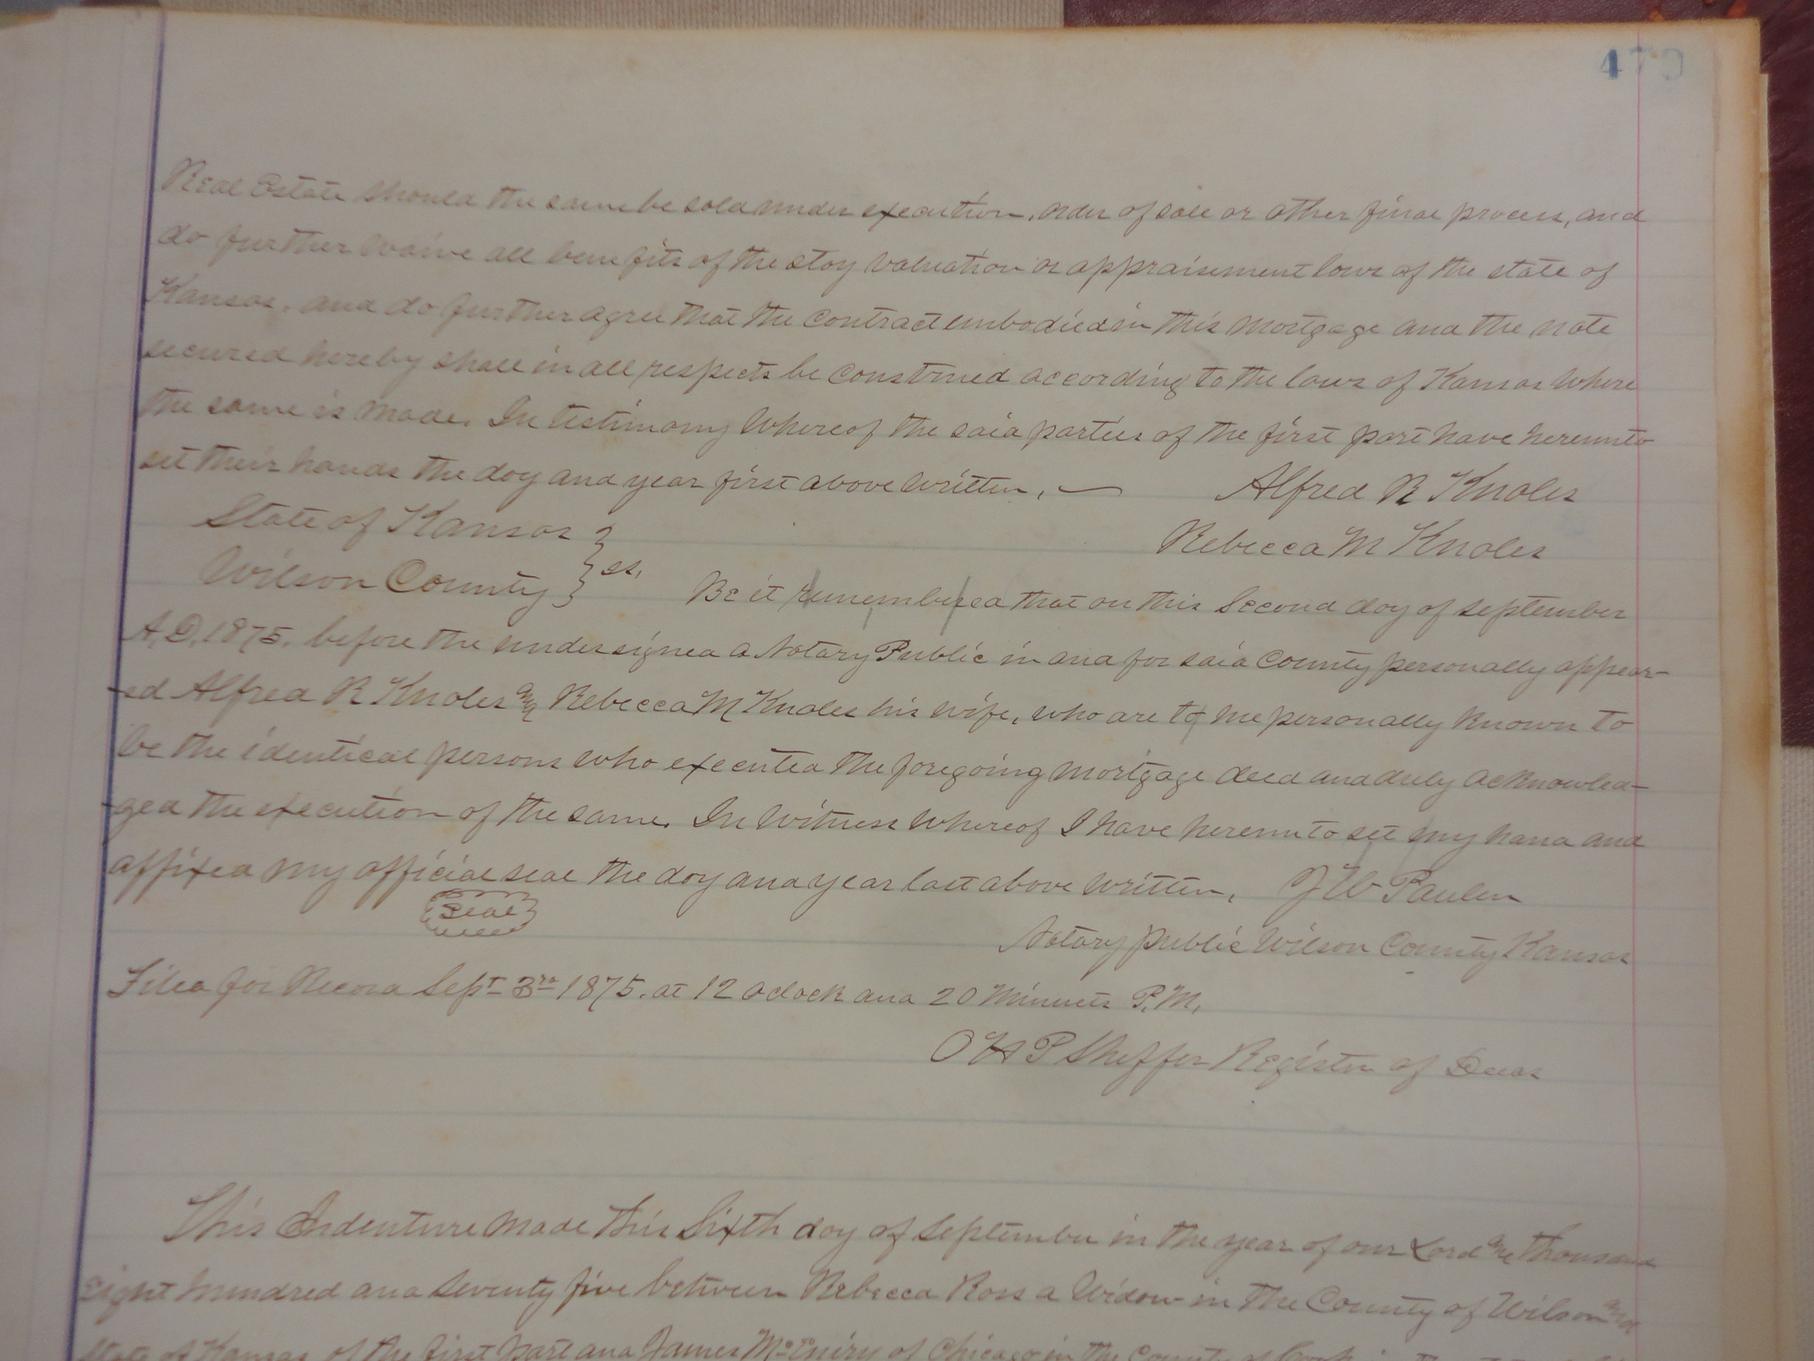 479
Real Estate should the same be sold under execution, order of sale or other final process, and
do further waive all benefits of the stay valuation or appraisement laws of the state of
Kansas, and do further agree that the contract embodied in this mortgage and the note
secured hereby shall in all respects be construed according to the laws of Kansas where
the same is made. In testimony whereof the said parties of the first part have hereunto
set their hands the day and year first above written, — Alfred R Knoles
Rebecca M Knoles
State of Kansas }
Wilson County } ss, Be it remembered that on this Second day of September
A.D. 1875. before the undersigned a Notary Public in and for said County personally appear-
ed Alfred R Knoles and Rebecca M Knoles his wife, who are to me personally known to
be the identical persons who executed the foregoing mortgage deed and duly acknowled-
ged the execution of the same. In Witness Whereof I have hereunto set my hand and
affixed my official seal the day and year last above written, J W Paulen
Seal
Notary Public Wilson County Kansas
Filed for Record Sept 3rd 1875. at 12 oclock and 20 Minutes P.M.
O H P Sheffer Register of Deeds
This Indenture made this Sixth day of September in the year of our Lord One thousand
Eight hundred and Seventy five between Rebecca Ross a Widow in the County of Wilson and
State of Kansas of the first part and James of Chicago in the County of Cook